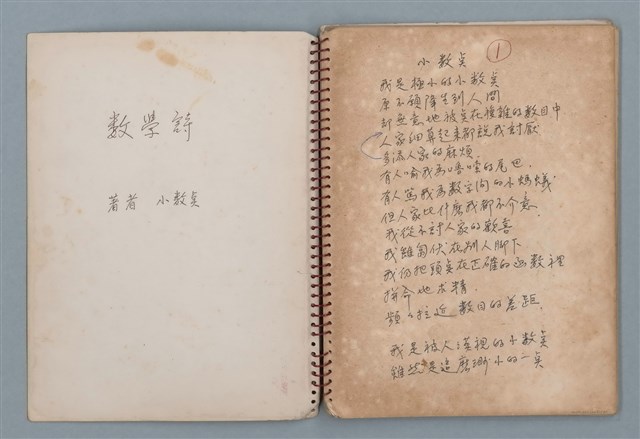 數學詩
著者 小數點
①
小數点
我是極小的小數点
原不願降生到人間
却無意地被点在複雜的數目中
人家細算起來都說我討厭
多添人家的麻煩
有人喻我為嘍嘍的尾巴
有人罵我為數字间的小螞蟻
但人家比什麼我都不介意
我從不討人家的歡喜
我雖匍伏在別人脚下
我仍把頭点在正確的函數裡
拼命地求精
頻々拉近數目的差距
我是被人漠視的小數点
雖然是這麼渺小的一点